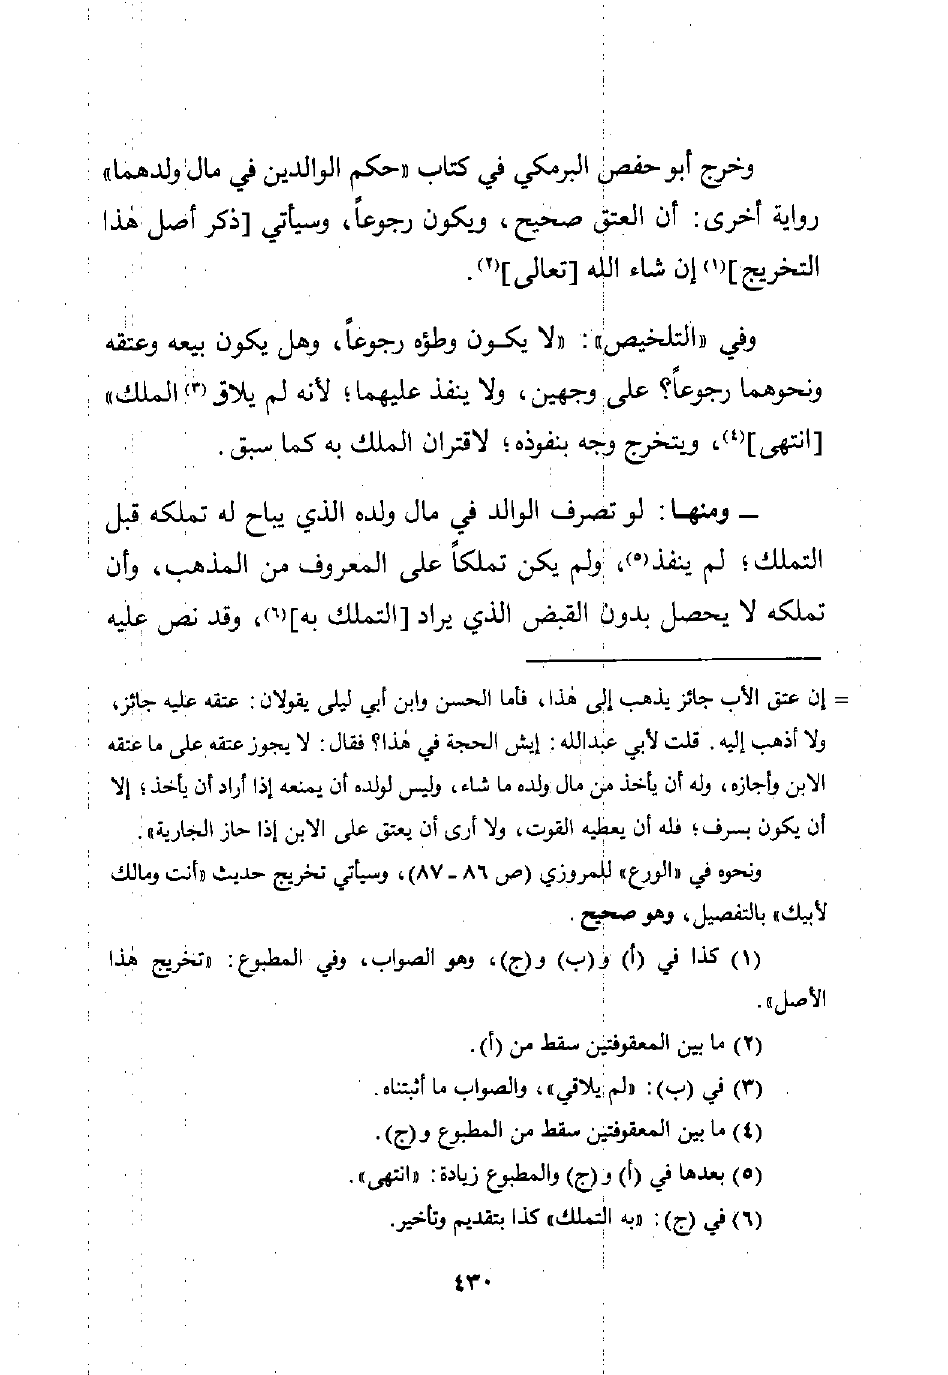 وخرج أبو حفص البرمكي في كتاب «حكم الوالدين في مال ولدهما»
رواية أخرى: أن العتق صحيح، ويكون رجوعاً، وسيأتي [ذكر أصل هٰذا
التخريج](١) إن شاء الله [تعالى](٢).
وفي «التلخيص»: «لا يكـون وطؤه رجوعاً، وهل يكون بيعه وعتقه
ونحوهما رجوعاً؟ على وجهين، ولا ينفذ عليهما؛ لأنه لم يلاق(٣) الملك»
[انتهى](٤)، ويتخرج وجه بنفوذه؛ لاقتران الملك به كما سبق.
ـ ومنهـا: لو تصرف الوالد في مال ولده الذي يباح له تملكه قبل
التملك؛ لم ينفذ(٥)، ولم يكن تملكاً على المعروف من المذهب، وأن
تملكه لا يحصل بدون القبض الذي يراد [التملك به](٦)، وقد نص عليه
= إن عتق الأب جائز يذهب إلى هٰذا، فأما الحسن وابن أبي ليلى يقولان: عتقه عليه جائز،
ولا أذهب إليه. قلت لأبي عبدالله: إيش الحجة في هٰذا؟ فقال: لا يجوز عتقه على ما عتقه
الابن وأجازه، وله أن يأخذ من مال ولده ما شاء، وليس لولده أن يمنعه إذا أراد أن يأخذ؛ إلا
أن يكون بسرف؛ فله أن يعطيه القوت، ولا أرى أن يعتق على الابن إذا حاز الجارية».
ونحوه في «الورع» للمروزي (ص ٨٦ ـ ٨٧)، وسيأتي تخريج حديث «أنت ومالك
لأبيك» بالتفصيل، وهو صحيح.
(١) كذا في (أ) و(ب) و(ج)، وهو الصواب، وفي المطبوع: «تخريج هٰذا
الأصل».
(٢) ما بين المعقوفتين سقط من (أ).
(٣) في (ب): «لم يلاقي»، والصواب ما أثبتناه.
(٤) ما بين المعقوفتين سقط من المطبوع و(ج).
(٥) بعدها في (أ) و(ج) والمطبوع زيادة: «انتهى».
(٦) في (ج): «به التملك» كذا بتقديم وتأخير.
٤٣٠